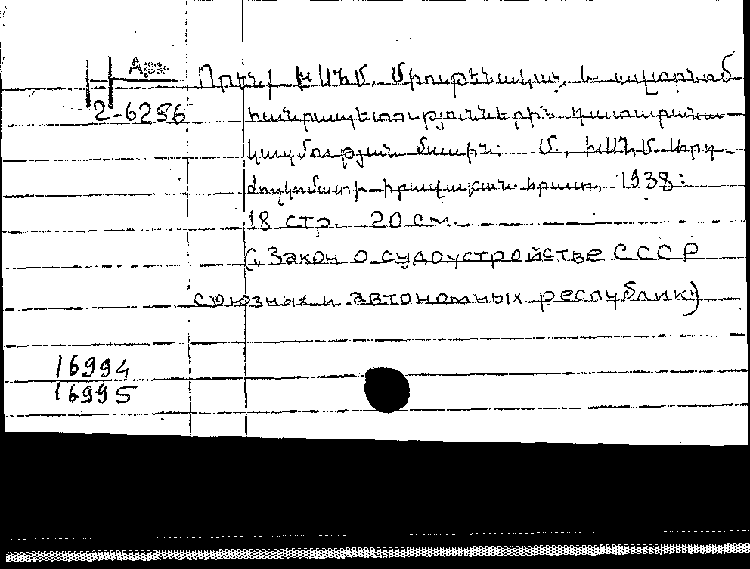 Арх.
2-6286
Օրենք ԽՍՀՄ, Միութենական և ավտոնոմ
հանրապետությունների դատարանա-
կազմության մասին: Մ., ԽՍՀՄ Արդ-
ժողկոմատի իրավական հրատ., 1938:
18 стр. 20 см.
(Закон о судоустройстве СССР
союзных и автономных республик)
16994
16995